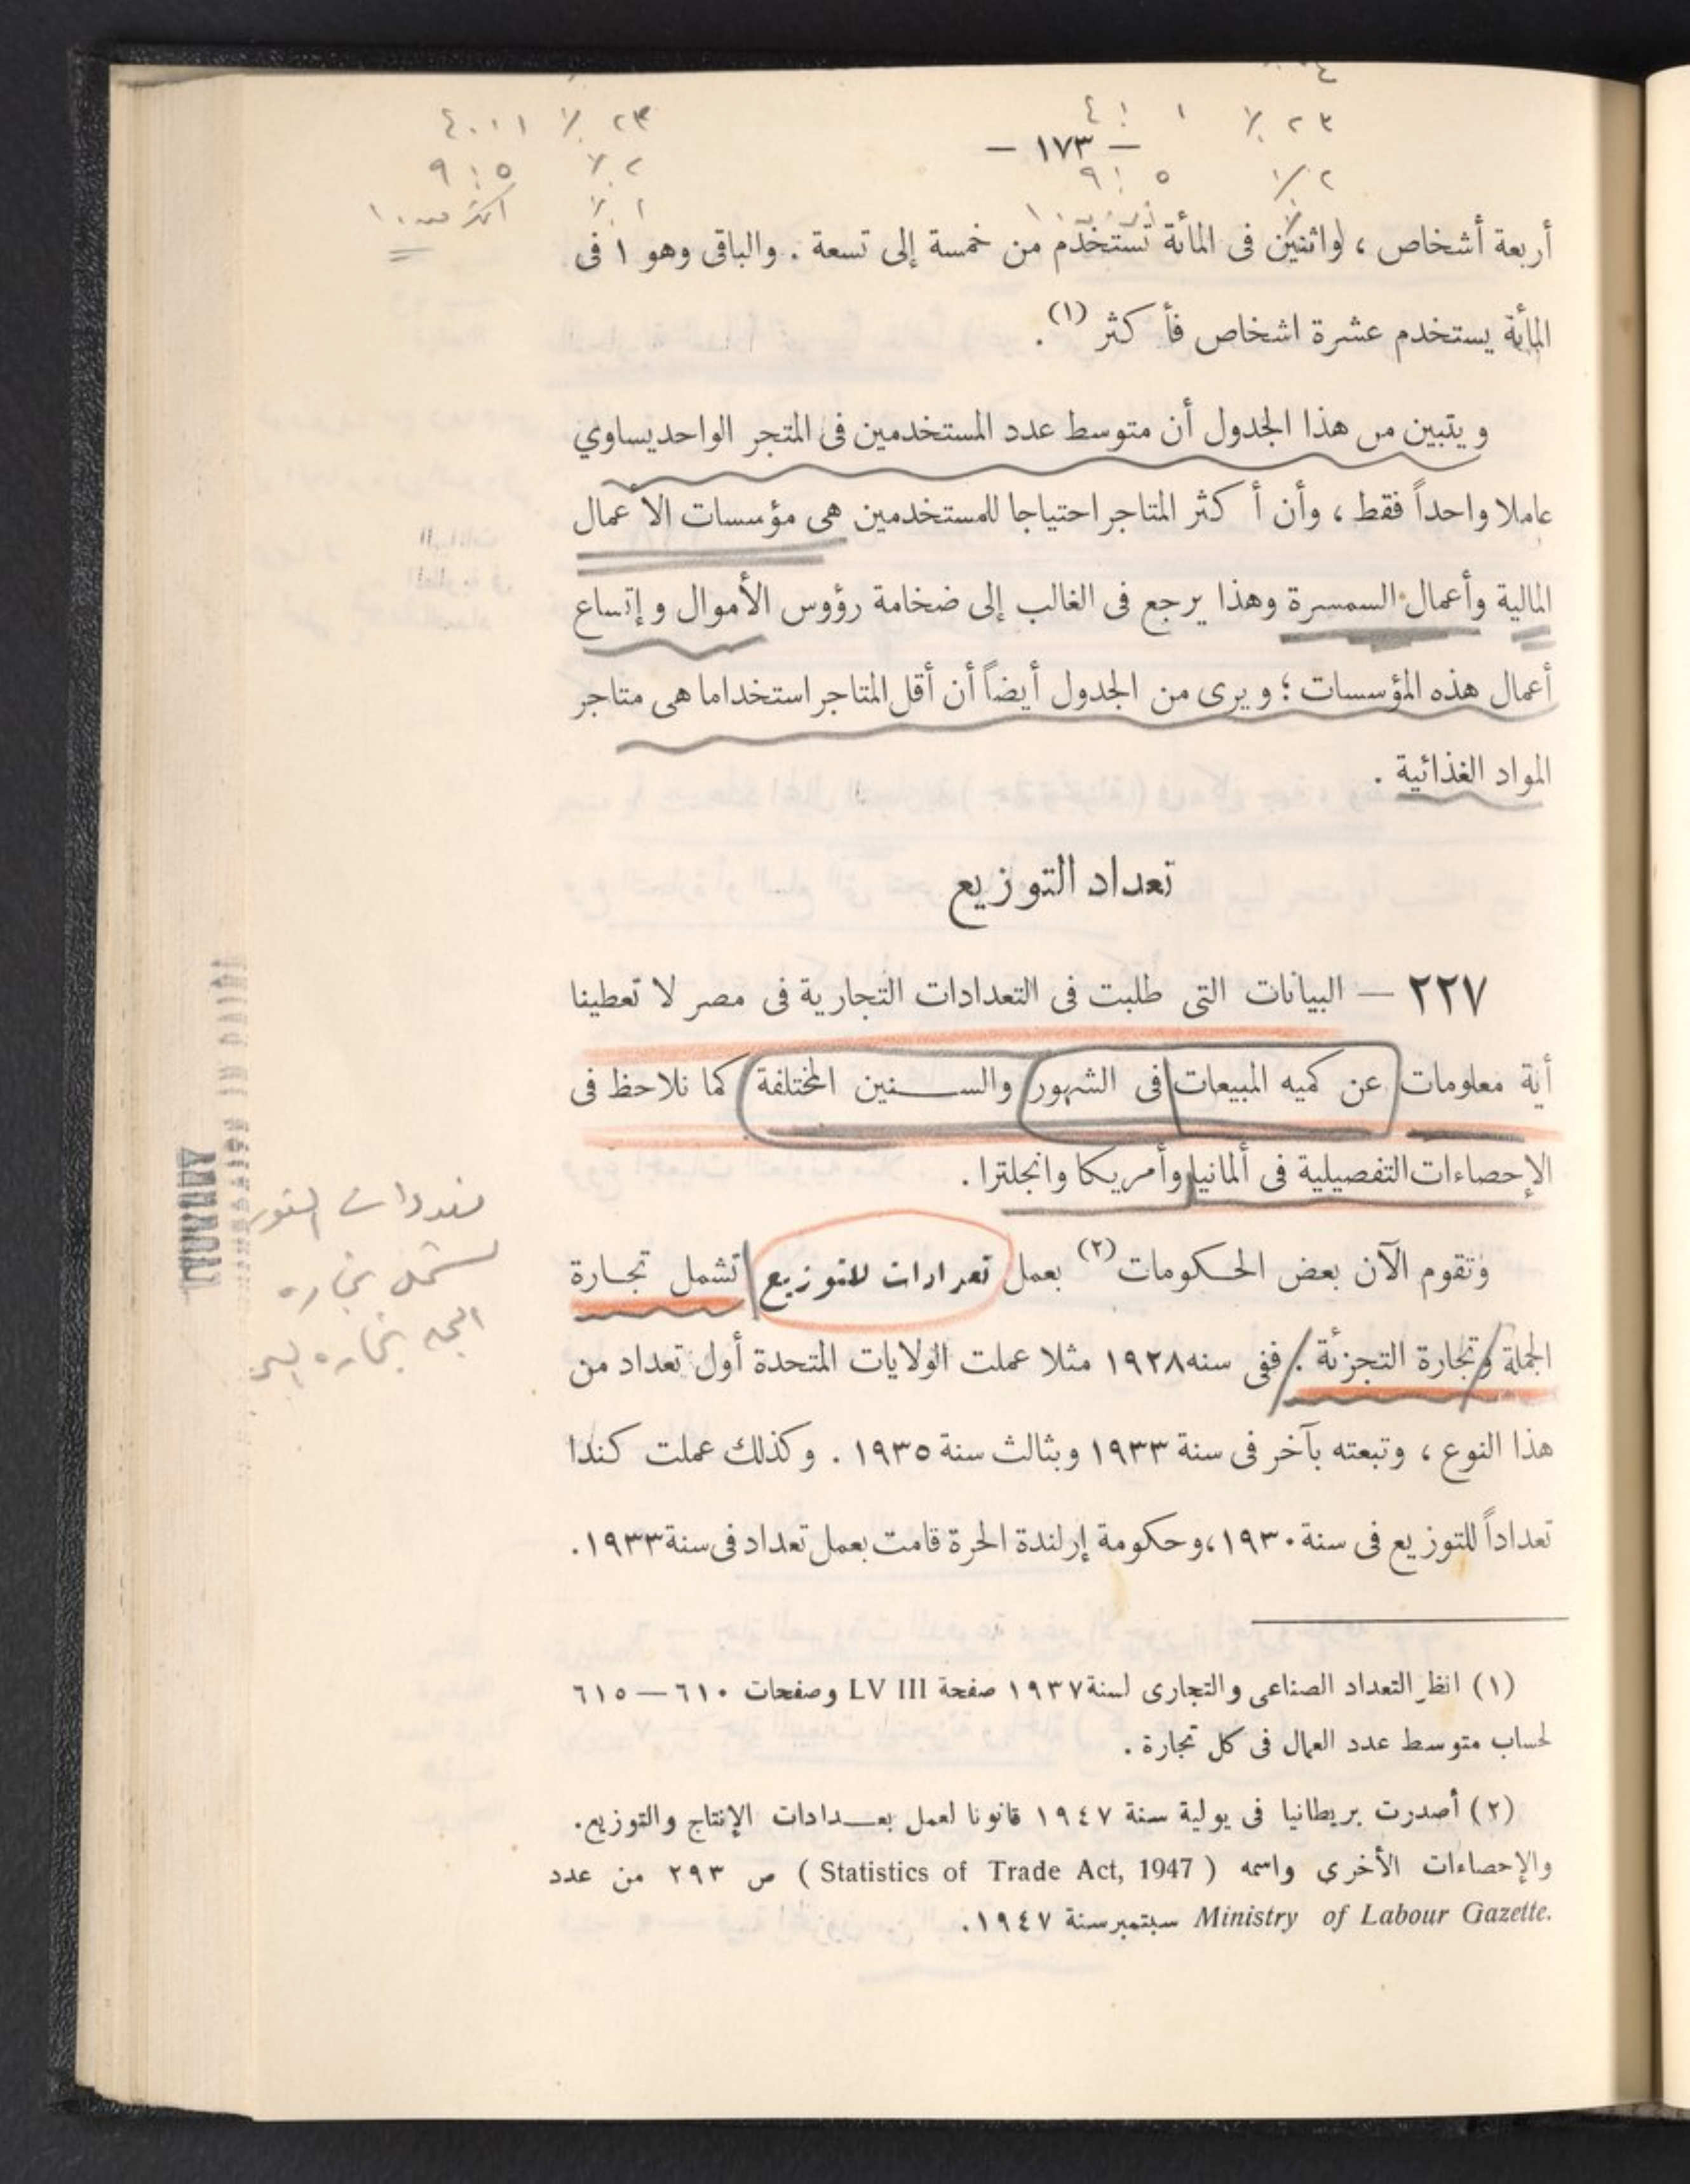 — ١٧٣ —
٢٣ ٪
٥ : ٩ ٢ ٪
٢٣ ٪
٢ ٪ ٥ : ٩
١ ٪ اكثر من ١٠
أربعة أشخاص ، واثنين فى المائة تستخدم من خمسة إلى تسعة . والباقى وهو ١ فى
المائة يستخدم عشرة اشخاص فأكثر (١) .
ويتبين من هذا الجدول أن متوسط عدد المستخدمين فى المتجر الواحد يساوي
عاملا واحداً فقط ، وأن أكثر المتاجر احتياجا للمستخدمين هى مؤسسات الأعمال
المالية وأعمال السمسرة وهذا يرجع فى الغالب إلى ضخامة رؤوس الأموال وإتساع
أعمال هذه المؤسسات ؛ ويرى من الجدول أيضاً أن أقل المتاجر استخداما هى متاجر
المواد الغذائية .
تعداد التوزيع
٢٢٧ — البيانات التى طلبت فى التعدادات التجارية فى مصر لا تعطينا
أية معلومات عن كميه المبيعات فى الشهور والســـنين المختلفة كما نلاحظ فى
الإحصاءات التفصيلية فى ألمانيا وأمريكا وانجلترا .
وتقوم الآن بعض الحكومات (٢) بعمل تعدادات للتوزيع تشمل تجارة
الجملة وتجارة التجزئة . ففى سنه ١٩٢٨ مثلا عملت الولايات المتحدة أول تعداد من
هذا النوع ، وتبعته بآخر فى سنة ١٩٣٣ وبثالث سنة ١٩٣٥ . وكذلك عملت كندا
تعداداً للتوزيع فى سنة ١٩٣٠، وحكومة إرلندة الحرة قامت بعمل تعداد فى سنة ١٩٣٣.
تشمل تجاره
(١) انظر التعداد الصناعى والتجارى لسنة ١٩٣٧ صفحة LV III وصفحات ٦١٠ — ٦١٥
لحساب متوسط عدد العمال فى كل تجارة .
(٢) أصدرت بريطانيا فى يولية سنة ١٩٤٧ قانونا لعمل بعـــدادات الإنتاج والتوزيع.
والإحصاءات الأخرى واسمه ( Statistics of Trade Act, 1947 ) ص ٢٩٣ من عدد
Ministry of Labour Gazette. سبتمبر سنة ١٩٤٧.